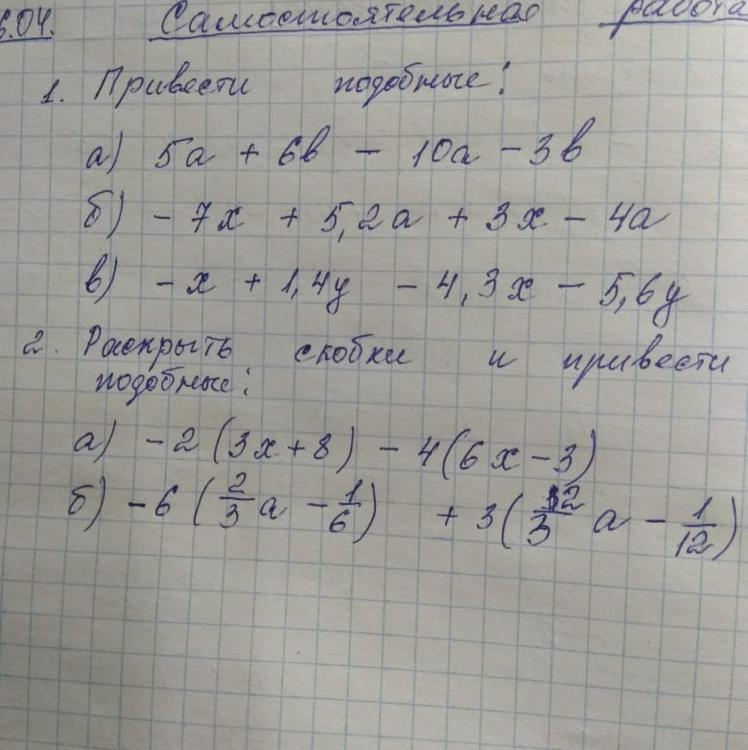 6.04. Самостоятельная работа
1. Привести подобные:
а) 5а + 6в - 10а - 3в
б) - 7х + 5,2а + 3х - 4а
в) - х + 1,4у - 4,3х - 5,6у
2. Раскрыть скобки и привести
подобные:
а) - 2 (3х + 8) - 4 (6х - 3)
б) - 6 (2/3 а - 1/6) + 3 (12/3 а - 1/12)